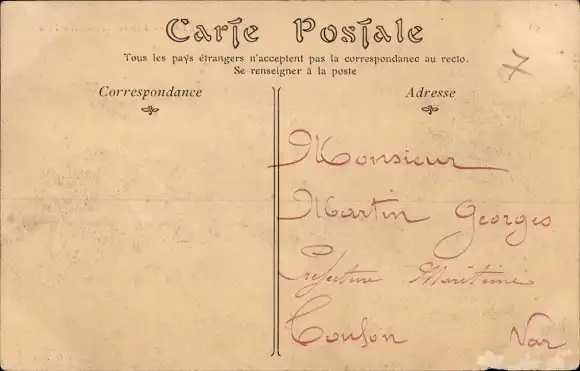 Carte Postale
Tous les pays étrangers n'acceptent pas la correspondanec au recto.
Se renseigner à la poste
Correspondance
Adresse
7
Monsieur
Martin Georges
Préfecture Maritime
Toulon Var